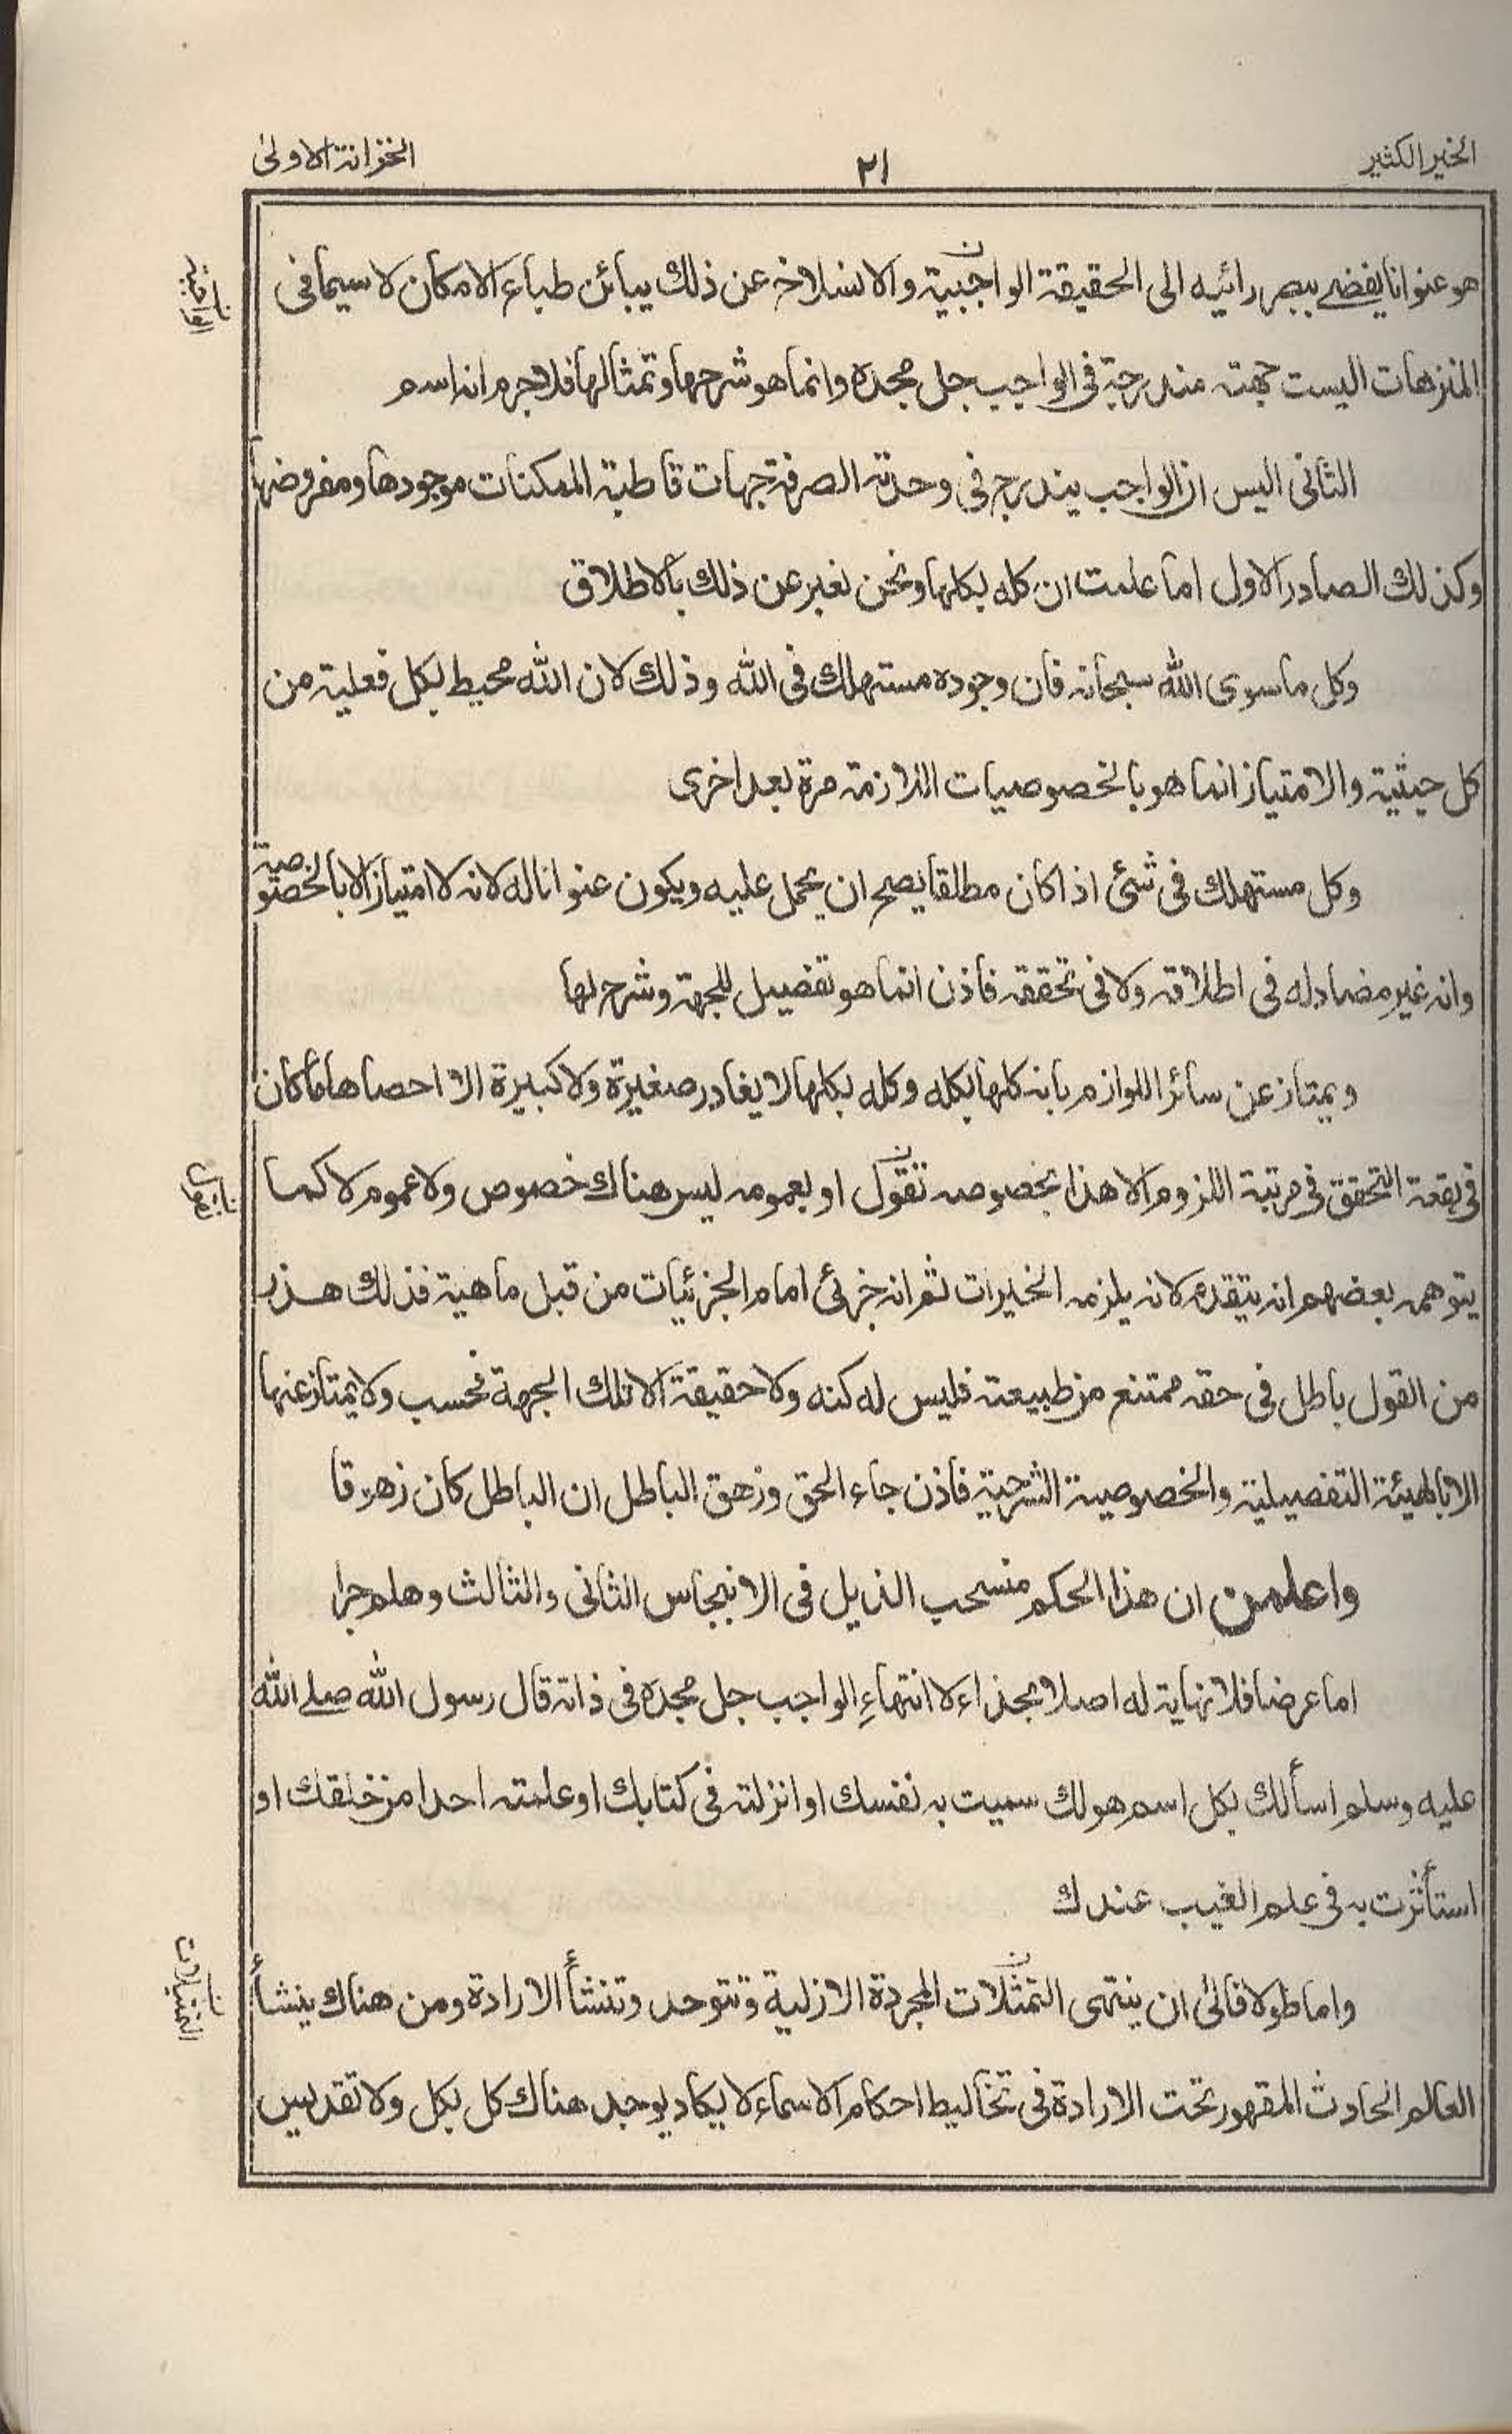 الخير الكثير
٢١
الخزانة الاولىٰ
هو عنوانا يفضے ببصر رائيه الى الحقيقة الواجبية والانسلاخ عن ذلك يبائن طباع الامكان لا سيما فى
المنزهات اليست جهته مندرجة فى الواجب جل مجده وانما هو شرحها وتمثالها فلا جرم انه اسم
الثانى اليس ان الواجب يندرج فى وحدته الصرفة جهات قاطبة الممكنات موجودها ومفروضها
وكذلك الصادر الاول اما علمت ان كله بكلها ونحن نعبر عن ذلك بالاطلاق
وكل ما سوى الله سبحانه فان وجوده مستهلك فى الله وذلك لان الله محيط بكل فعلية من
كل حيثية والامتياز انما هو بالخصوصيات اللازمة مرة بعد اخرى
وكل مستهلك فى شئ اذا كان مطلقا يصح ان يحمل عليه ويكون عنوانا له لانه لا امتياز الا بالخصوصية
وانه غير مضاد له فى اطلاقه ولا فى تحققه فاذن انما هو تفصيل للجهة وشرح لها
ويمتاز عن سائر اللوازم بانه كلها بكله وكله بكلها لا يغادر صغيرة ولا كبيرة الا احصاها ما كان
فى بقعة التحقق فى مرتبة اللزوم الا هذا بخصوصه تقول او بعمومه ليس هناك خصوص ولا عموم لا كما
يتوهمه بعضهم انه يتقدم لانه يلزمه الخيرات ثم انه جزئى امام الجزئيات من قبل ماهية فذلك هذر
من القول باطل فى حقه ممتنع من طبيعته فليس له كنه ولا حقيقة الا تلك الجهة فحسب ولا يمتاز عنها
الا بالهيئة التفصيلية والخصوصية الشرحية فاذن جاء الحق وزهق الباطل ان الباطل كان زهوقا
واعلمن ان هذا الحكم منسحب الذيل فى الانبجاس الثانى والثالث وهلم جرا
اما عرضا فلا نهاية له اصلا بحذاء لا انتهاءِ الواجب جل مجده فى ذاته قال رسول الله صلے الله
عليه وسلم اسألك بكل اسم هو لك سميت به نفسك او انزلته فى كتابك او علمته احدا من خلقك او
استأثرت به فى علم الغيب عندك
واما طولا فالىٰ ان ينتهى التمثّلات المجردة الازلية وتتوحد وتنشأ الارادة ومن هناك ينشأ
العالم الحادث المقهور تحت الارادة فى تخاليط احكام الاسماء لا يكاد يوجد هناك كل بكل ولا تقديس